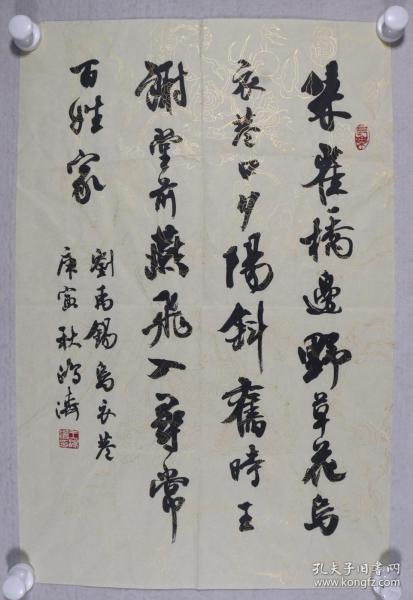 朱雀橋邊野草花烏
衣巷口夕陽斜舊時王
謝堂前燕飛入尋常
百姓家
劉禹錫烏衣巷
庚寅秋
孔夫子旧书网
www.kongfz.com